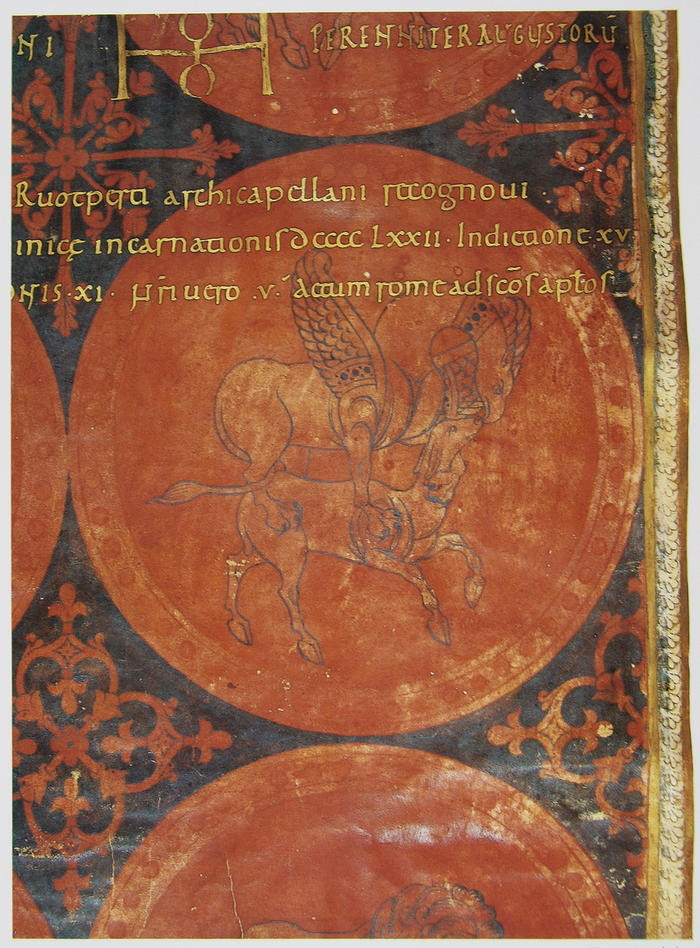 NI PERENNITER AUGUSTORŪ
Ruotperti archicapellani recognoui ·
inicę incarnationis dcccc Lxxii · Indictione xv
NIS · xi · uero · v · actum rome ad scōs aptos